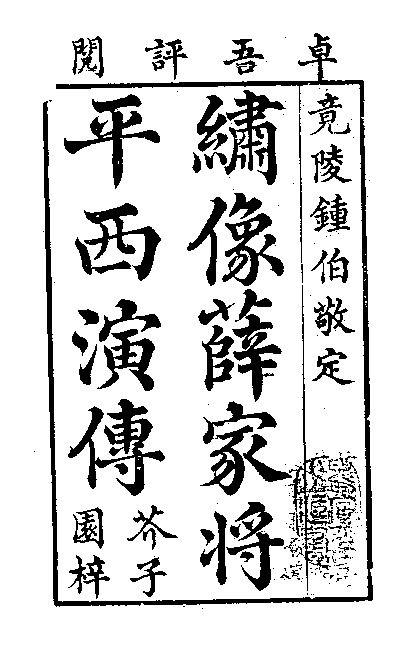 卓吾評閱
竟陵鍾伯敬定
繡像薛家將
平西演傳
芥子
園梓